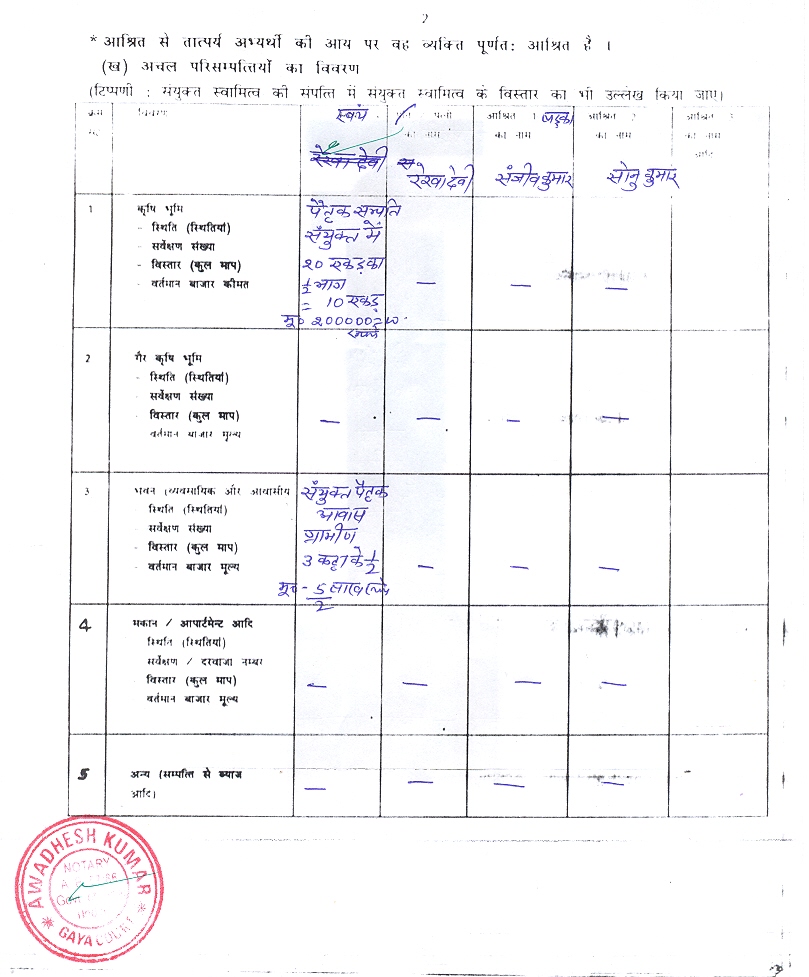 2
* आश्रित से तात्पर्य अभ्यर्थी की आय पर वह व्यक्ति पूर्णत: आश्रित है ।
(ख) अचल परिसम्पत्तियों का विवरण
(टिप्पणी : संयुक्त स्वामित्व की संपत्ति में संयुक्त स्वामित्व के विस्तार का भी उल्लेख किया जाए)
क्रम विवरण स्वयं पत्नी का नाम आश्रित 1 लड़का का नाम आश्रित 2 का नाम आश्रित 3 का नाम आदि
रेखा देवी रेखा देवी संजीव कुमार सोनु कुमार
1 कृषि भूमि पैतृक सम्पति
- स्थिति (स्थितियां) संयुक्त में
- सर्वेक्षण संख्या
- विस्तार (कुल माप) २० एकड़ का
- वर्तमान बाजार कीमत ½ भाग — — —
= 10 एकड़
मू० २०००००=००
2 गैर कृषि भूमि
- स्थिति (स्थितियां)
- सर्वेक्षण संख्या
- विस्तार (कुल माप) — — — —
वर्तमान बाजार मूल्य
3 भवन (व्यवसायिक और आवासीय संयुक्त पैतृक
स्थिति (स्थितियां) आवास
- सर्वेक्षण संख्या ग्रामीण
- विस्तार (कुल माप) 3 कट्ठा के ½
- वर्तमान बाजार मूल्य — — —
मू० - 5/2 लाख
4 मकान / आपार्टमेन्ट आदि
स्थिति (स्थितियां)
सर्वेक्षण / दरवाजा नम्बर
विस्तार (कुल माप) — — — —
वर्तमान बाजार मूल्य
5 अन्य (सम्पत्ति से ब्याज
आदि) — — — —
AWADHESH KUMAR
NOTARY
GAYA COURT